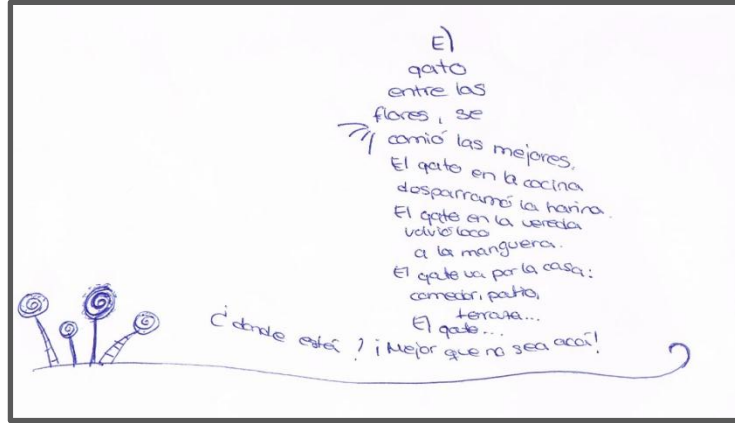 El
gato
entre las
flores, se
comió las mejores.
El gato en la cocina
desparramó la harina.
El gato en la vereda
volvió loco
a la manguera.
El gato va por la casa:
comedor, patio,
terraza...
El gato...
¿donde está? ¡Mejor que no sea acá!